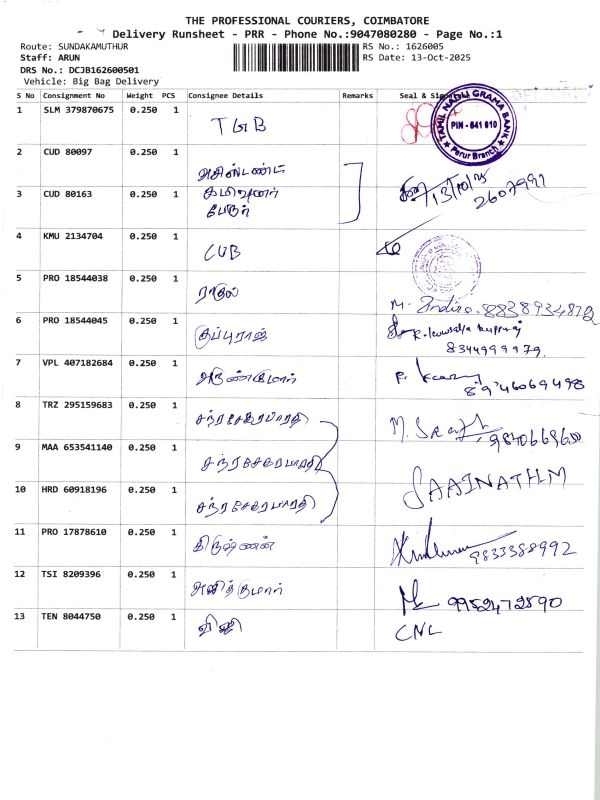 THE PROFESSIONAL COURIERS, COIMBATORE
Delivery Runsheet - PRR - Phone No.:9047080280 - Page No.:1
Route: SUNDAKAMUTHUR RS No.: 1626005
Staff: ARUN RS Date: 13-Oct-2025
DRS No.: DCJB162600501
Vehicle: Big Bag Delivery
S No Consignment No Weight PCS Consignee Details Remarks Seal &
1 SLM 379870675 0.250 1 TGB
TAMIL NADU GRAMA BANK
PIN - 641 010
Perur Branch
2 CUD 80097 0.250 1 அசிஸ்டண்ட்
3 CUD 80163 0.250 1 கமிஷனர் 13/10/25
பேரூர் 2607991
4 KMU 2134704 0.250 1 CUB
5 PRO 18544038 0.250 1 ராகுல் M. Indira. 8838934872
6 PRO 18544045 0.250 1 குப்புராஜ்
8344999979.
7 VPL 407182684 0.250 1 அருண்குமார் 8946069498
8 TRZ 295159683 0.250 1 சந்ரசேகரபாரதி 9840669600
9 MAA 653541140 0.250 1 சந்ரசேகரபாரதி
10 HRD 60918196 0.250 1 சந்ரசேகரபாரதி SAAINATH.M
11 PRO 17878610 0.250 1 கிருஷ்ணன் 9833388992
12 TSI 8209396 0.250 1 அனித்குமார் 9952472590
13 TEN 8044750 0.250 1 விஜி CNL